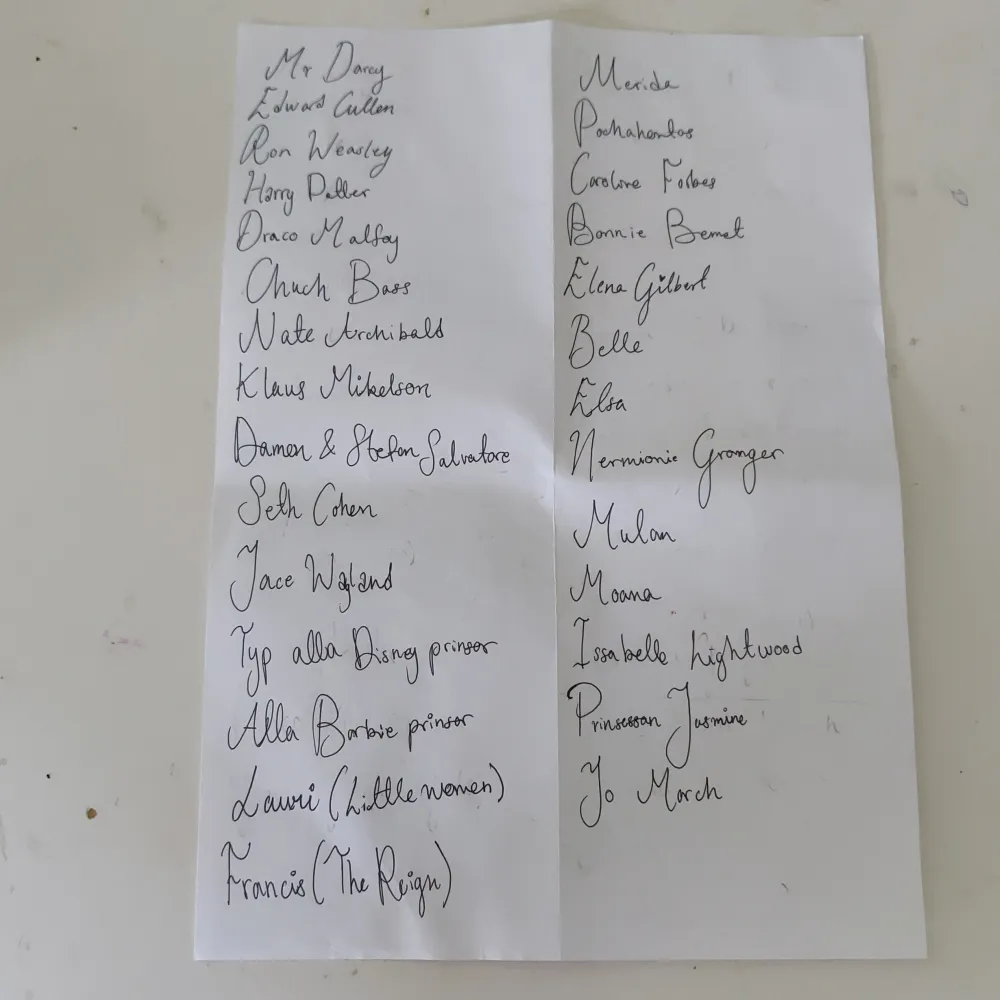 Mr Darcy
Edward Cullen
Ron Weasley
Harry Potter
Draco Malfoy
Chuck Bass
Nate Archibald
Klaus Mikelson
Damon & Stefan Salvatore
Seth Cohen
Jace Wayland
Typ alla Disney prinsar
Alla Barbie prinsar
Lauri (Little women)
Francis (The Reign)
Merida
Pochahontas
Caroline Forbes
Bonnie Bennet
Elena Gilbert
Belle
Elsa
Hermionie Granger
Mulan
Moana
Issabelle Lightwood
Prinsessan Jasmine
Jo March